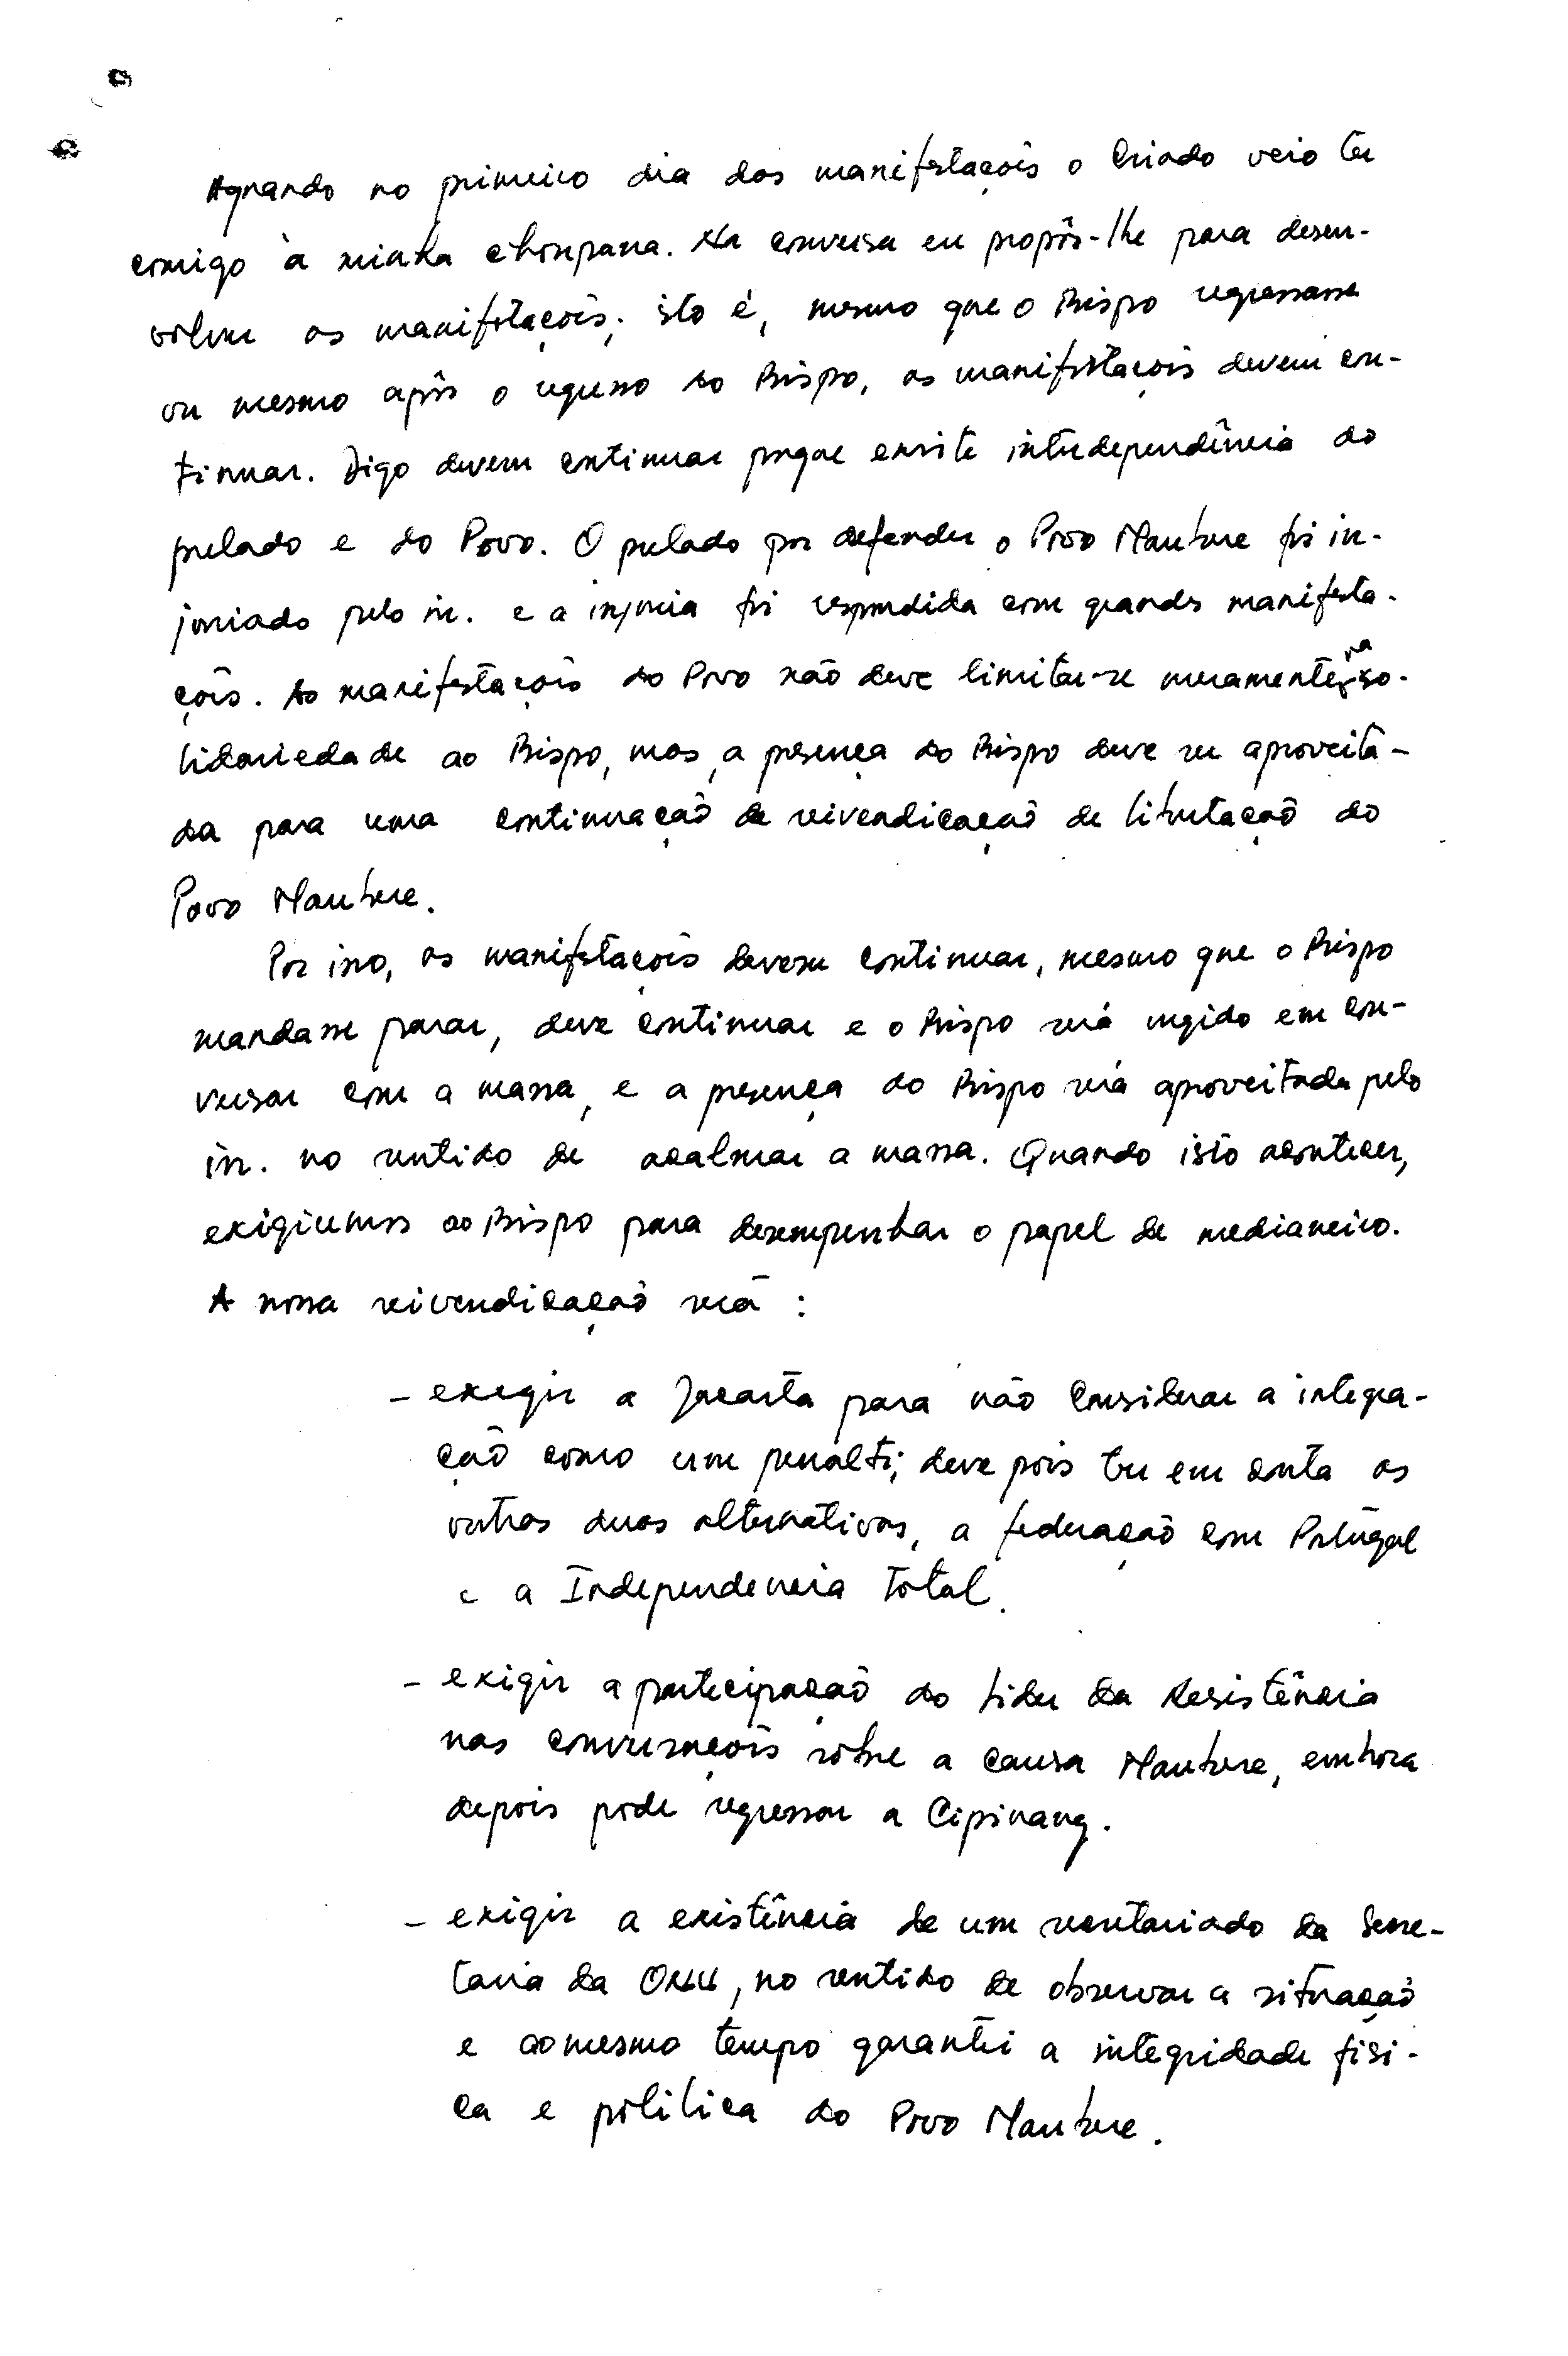 Aquando no primeiro dia das manifestações o Criado veio ter
comigo à minha choupana. Na conversa eu propôs-lhe para desen-
volver as manifestações; isto é, mesmo que o Bispo regressasse
ou mesmo após o regresso do Bispo, as manifestações devem con-
tinuar. Digo devem continuar porque existe interdependência do
prelado e do Povo. O prelado por defender o Povo Maubere foi in-
juriado pelo in. e a injuria foi respondida com grandes manifesta-
ções. As manifestações do Povo não deve limitar-se meramente na so-
lidariedade ao Bispo, mas, a presença do Bispo deve ser aproveita-
da para uma continuação de reivendicação de libertação do
Povo Maubere.
Por isso, as manifestações devem continuar, mesmo que o Bispo
mandasse parar, deve continuar e o Bispo será urgido em con-
versar com a massa, e a presença do Bispo será aproveitada pelo
in. no sentido de acalmar a massa. Quando isto acontecer,
exigiremos ao Bispo para desempenhar o papel de medianeiro.
A nossa reivendicação será :
- exegir a Jacarta para não considerar a integra-
ção como um penálti; deve pois ter em conta as
outras duas alternativas, a federação com Portugal
e a Independencia Total.
- exigir a partecipação do Lider da Resistência
nas conversações sôbre a causa Maubere, embora
depois pode regressar a Cipinang.
- exigir a existência de um secretariado da Secre-
taria da ONU, no sentido de observar a situação
e ao mesmo tempo garantir a integridade fisi-
ca e politica do Povo Maubere.